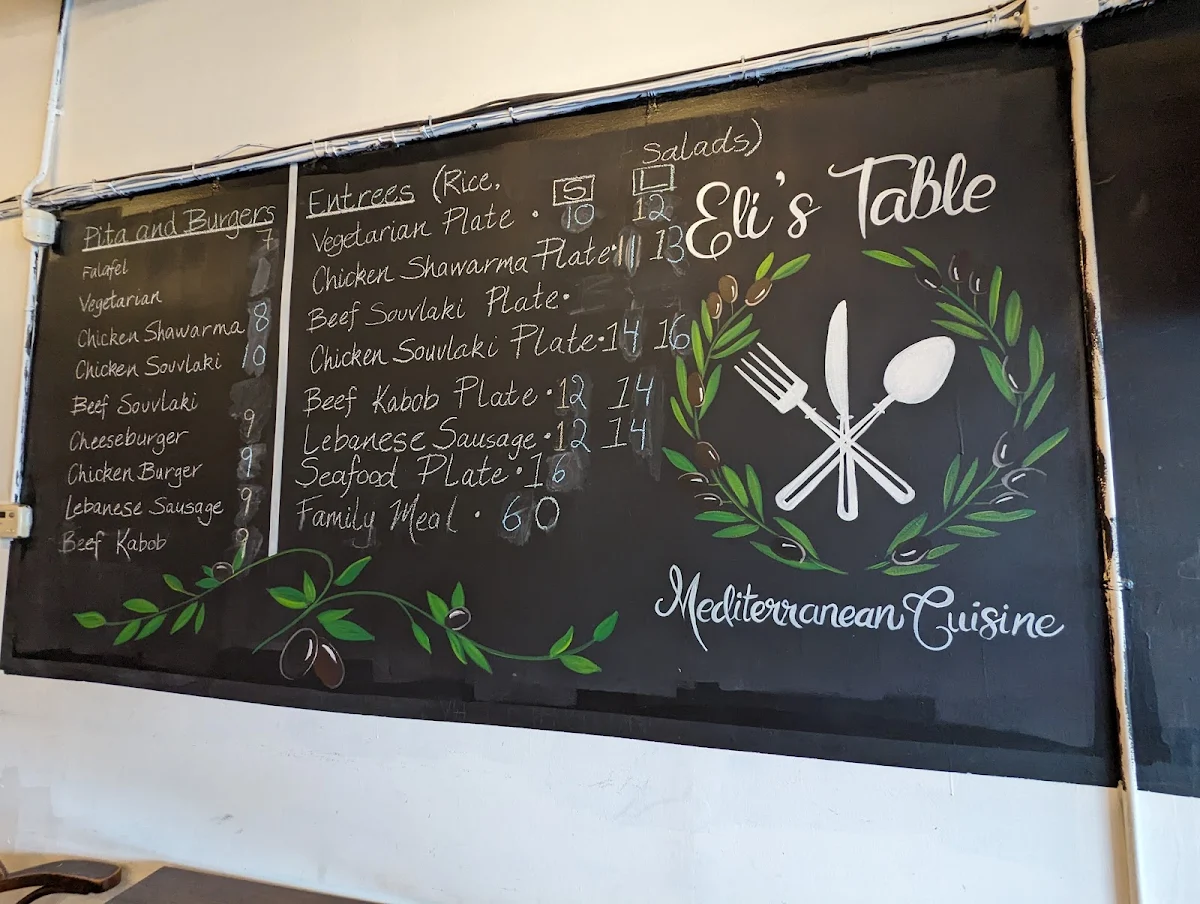 Pita and Burgers
Falafel 7
Vegetarian
Chicken Shawarma 8
Chicken Souvlaki 10
Beef Souvlaki
Cheeseburger 9
Chicken Burger 9
Lebanese Sausage 9
Beef Kabob 9
Entrees (Rice, Salads)
S L
Vegetarian Plate • 10 12
Chicken Shawarma Plate • 11 13
Beef Souvlaki Plate •
Chicken Souvlaki Plate • 14 16
Beef Kabob Plate • 12 14
Lebanese Sausage • 12 14
Seafood Plate • 16
Family Meal • 60
Eli's Table
Mediterranean Cuisine